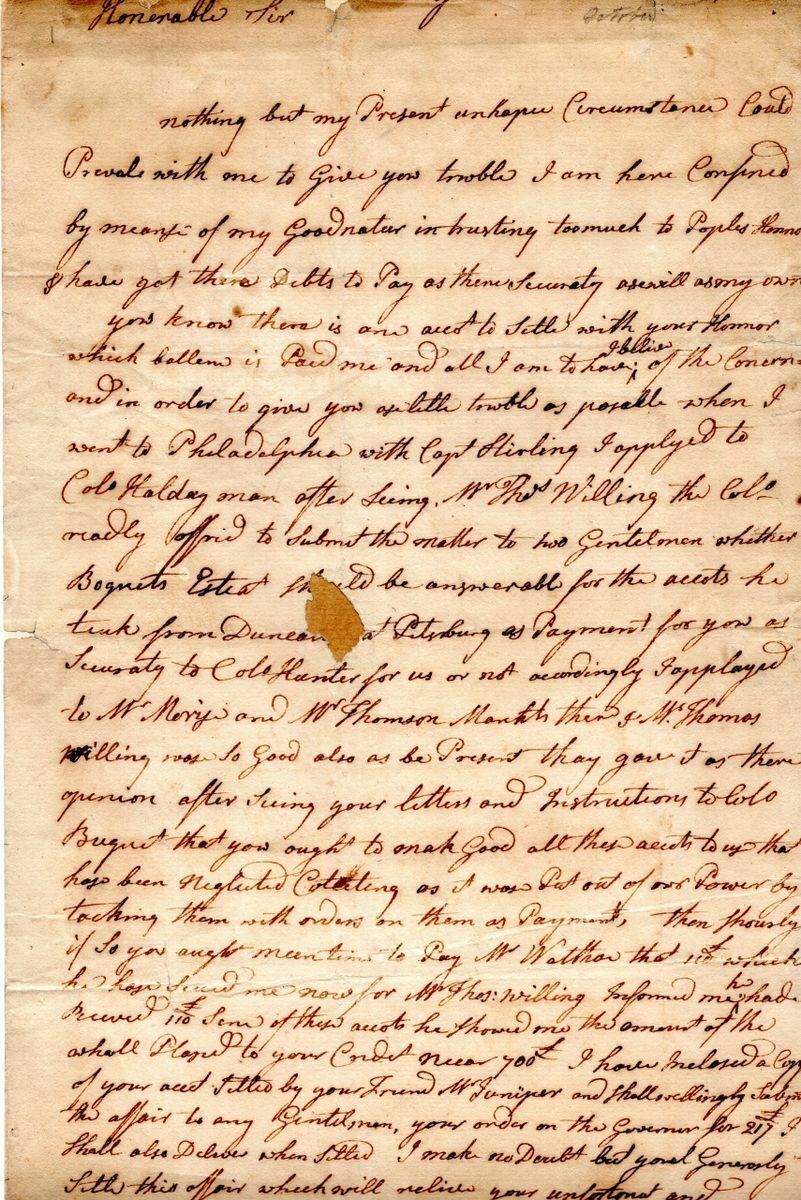 Honerable Sir October
nothing but my Present unhapie Circumstance Could
Prevale with me to Give you troble I am here Confined
by means of my Goodnatur in trusting toomuch to Poples Honno
& have got there Debts to Pay as there Securaty aswill as my own
you know there is ane acct to Setle with your Honnor
which ballenc is Paed me and all I am to have I belive of the Concern
and in order to give you as litle troble as posable when I
went to Philadelphia with Capt Stirling I applyed to
Colo Haldayman after Seing Mr Thos Willing the Colo
readly offrid to Submit the matter to two Gentelmen whither
Boquets Esteat should be answerable for the accots he
teuk from Duncan at Pitsburg as Payment for you as
Securaty to Colo Hunter for us or not accordingly I applayed
to Mr Moriss and Mr Thomson Marchts ther & Mr Thomas
Willing wase So Good also as be Present thay gave it as there
opinion after Seing your letters and Instructions to Colo
Buquet that you ought to mak Good all these accots to us that
hase been Neglected Colecting as it wase Put out of our Power by
tacking them with orders on them as Payment, then shourly
if So you aught meantime to Pay Mr that 110£ which
he hase Seued me now for Mr Thos: Willing Informed me he had
Receved 110£ Sene of these accots he showed me the amount of the
whall Plased to your Credet necar 700£ I have Inclosed a Copy
of your acct Setled by your Friend Mr Juniper and shall willingly Submit
the affair to any Gentelmen, your order on the Governor for 217£ I
Shall also Deliver when Setled I make no Doubt but youl Generosly
Setle this affair which will relive your unfortonat and